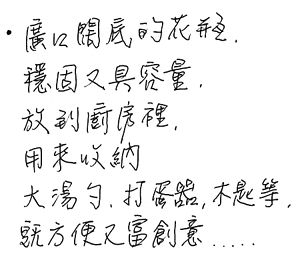 • 廣口闊底的花瓶,
穩固又具容量,
放到廚房裡,
用來收納
大湯勺、打蛋器,木匙等,
既方便又富創意.....